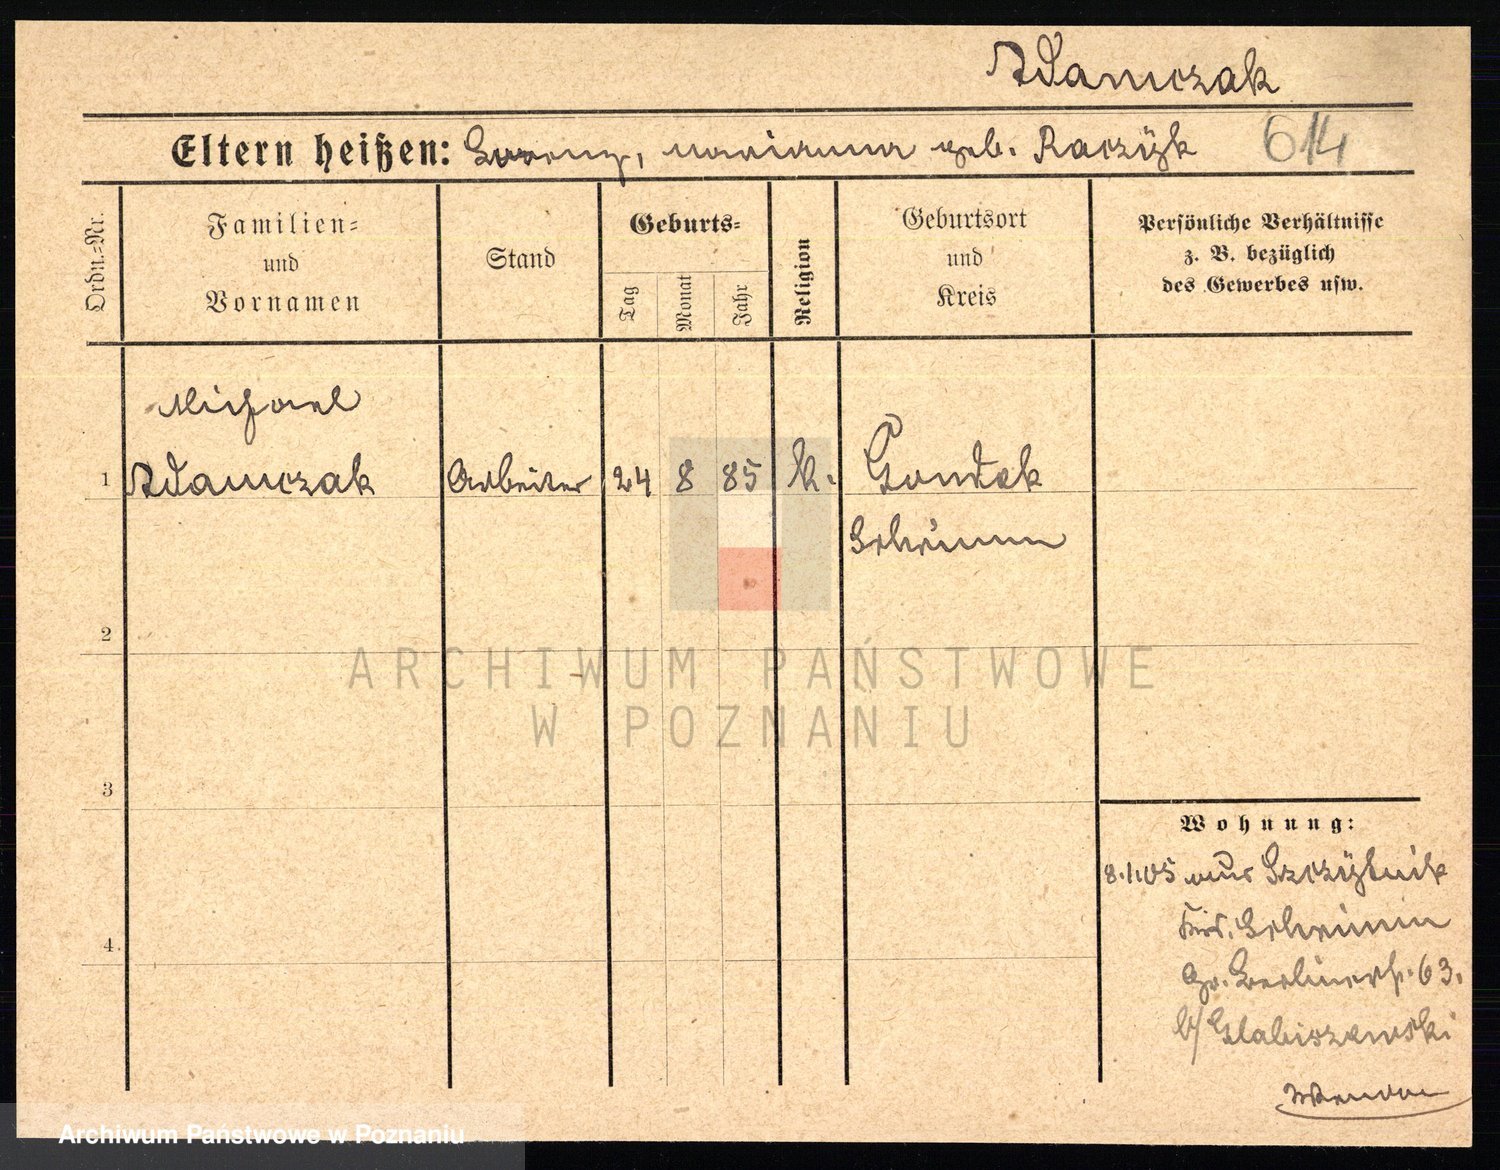 Adamczak
Eltern heißen: Lorenz, Marianna geb. Raczÿk 614
Ordn.-Nr.
Familien-
und
Vornamen
Stand
Geburts-
Tag
Monat
Jahr
Religion
Geburtsort
und
Kreis
Persönliche Verhältnisse
z. B. bezüglich
des Gewerbes usw.
Michael
1 Adamczak Arbeiter 24 8 85 k. Gondek
Schrimm
2
ARCHIWUM PAŃSTWOWE
W POZNANIU
3
Wohnung:
8.1.05 aus Szczÿtnik
Krs. Schrimm
Gr. Berlinerstr. 63.
b/
4.
Archiwum Państwowe w Poznaniu